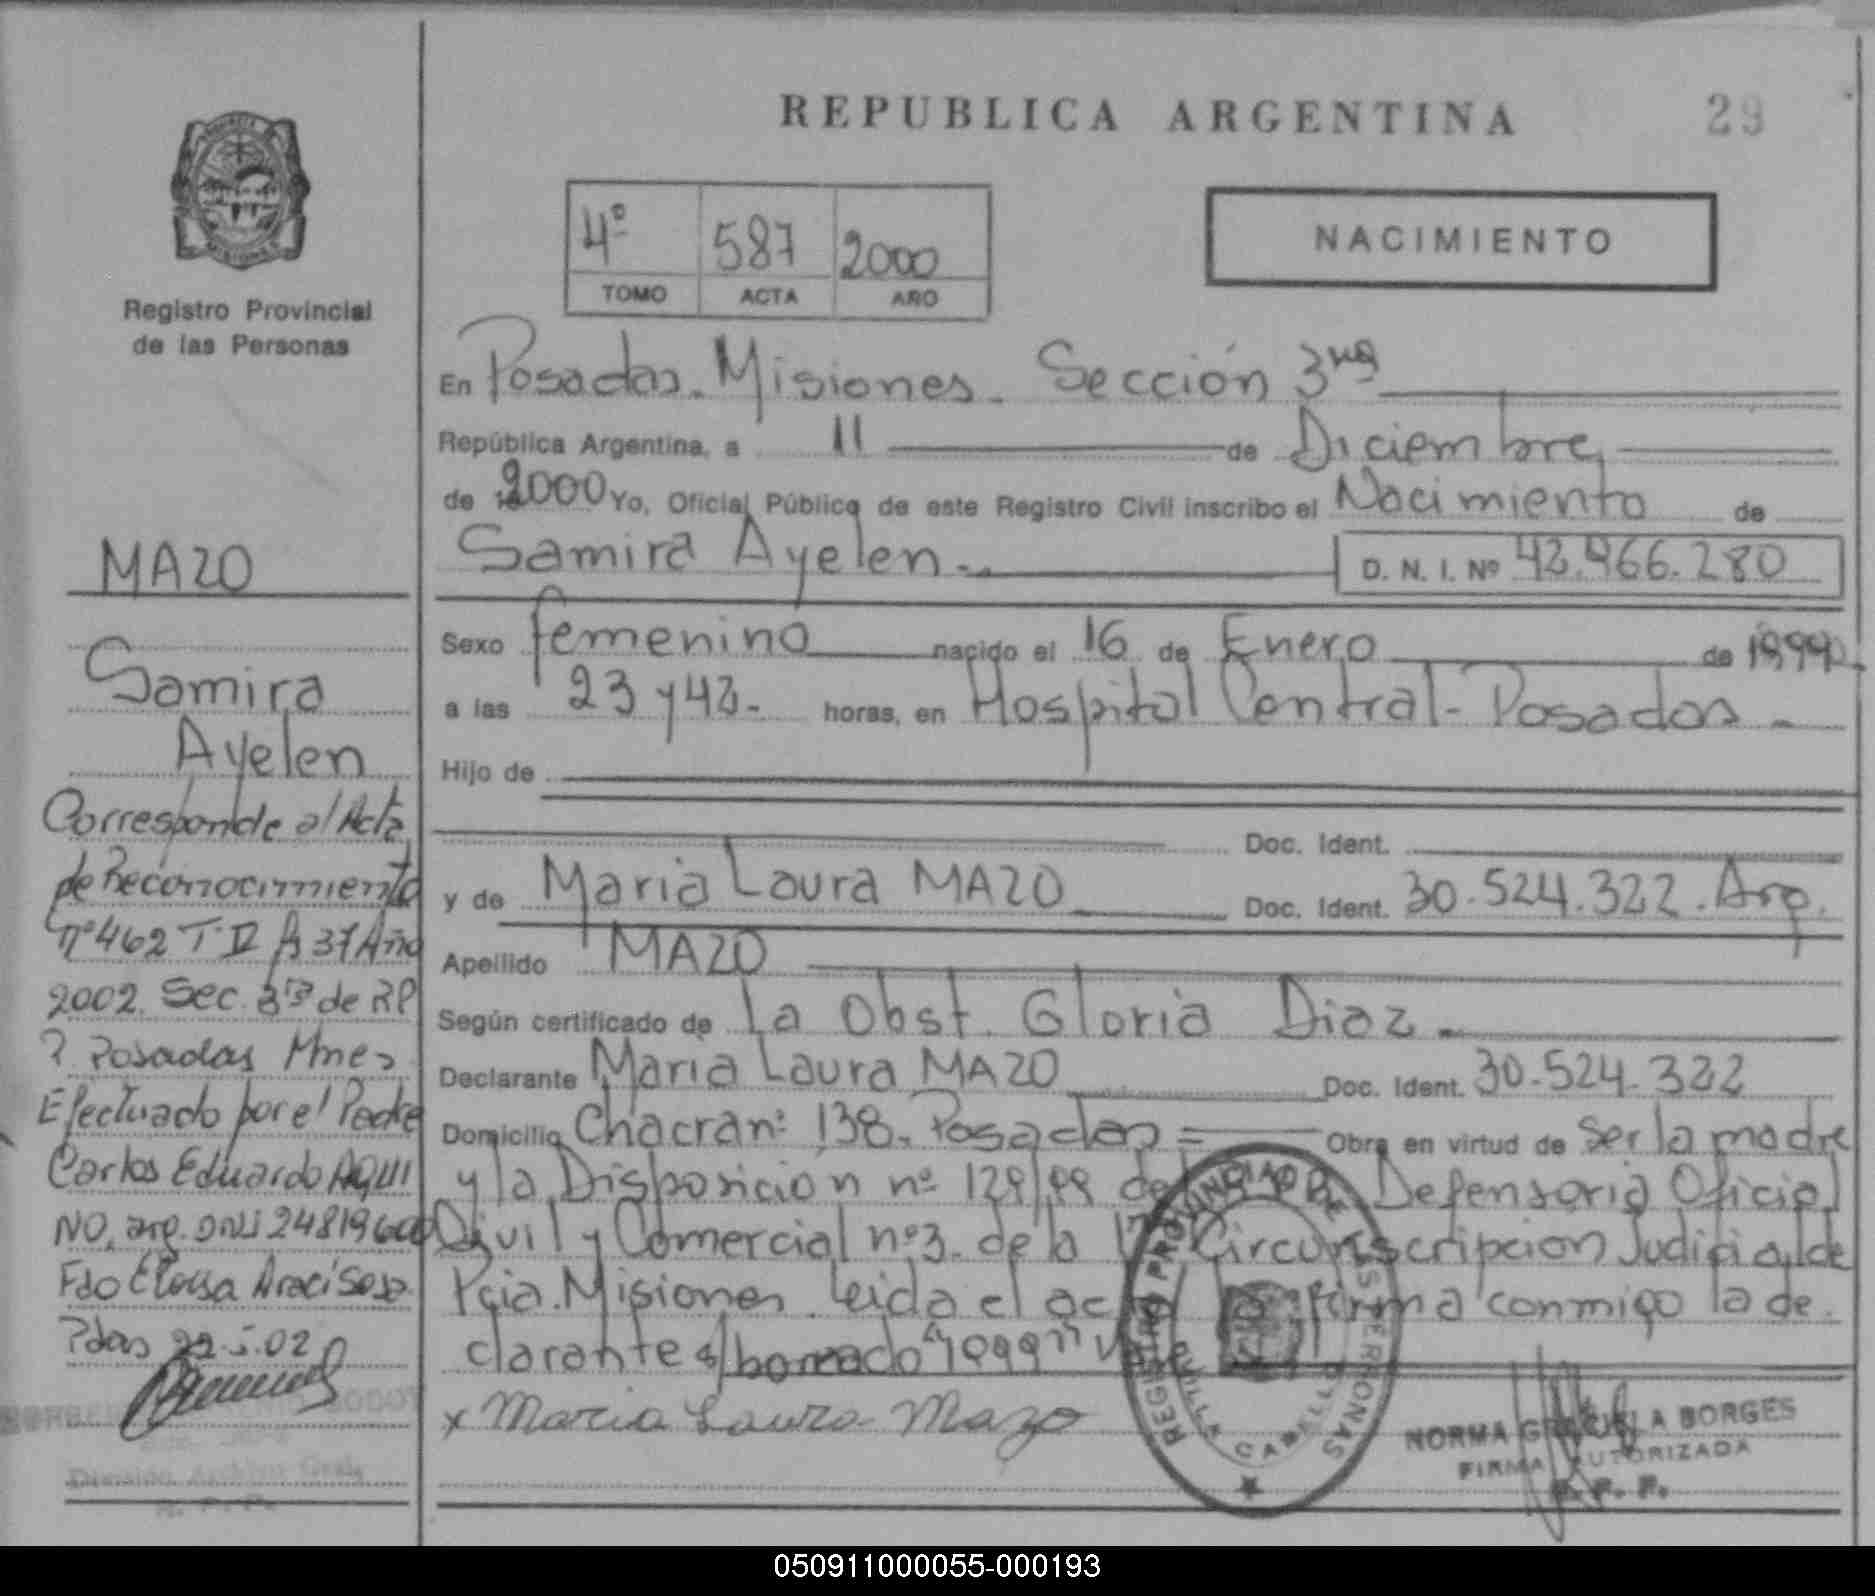 REPUBLICA ARGENTINA
29
4º 587 2000
TOMO ACTA AÑO
NACIMIENTO
Registro Provincial
de las Personas
MAZO
Samira
Ayelen
Corresponde al Acta
de Reconocimiento
nº 462 T. II Fº 37 Año
2002. Sec. 3ra de RP
P. Posadas Mnes
Efectuado por el Padre
Carlos Eduardo AQUI
NO, arg. DNI 24819600
Fdo Elousa Araci Sosa
Pdas 22.5.02
En Posadas. Misiones. Sección 3ra
República Argentina, a 11 de Diciembre
de 2000 Yo, Oficial Público de este Registro Civil inscribo el Nacimiento de
Samira Ayelen.
D. N. I. Nº 42.466.280
Sexo femenino nacido el 16 de Enero de
a las 23 y 42. horas, en Hospital Central - Posadas -
Hijo de
Doc. Ident.
y de Maria Laura MAZO Doc. Ident. 30.524.322. Arg.
Apellido MAZO
Según certificado de La Obst. Gloria Diaz.
Declarante Maria Laura MAZO Doc. Ident. 30.524.322
Domicilio Chacra nº 138. Posadas = Obra en virtud de ser la madre
y la Disposición nº 129/99 de Defensoria Oficial
Civil y Comercial nº 3. de la Circunscripcion Judicial de
Pcia. Misiones. Leida el ac firma conmigo la de
clarante s/borrado "1999"
x Maria Laura Mazo
REGISTRO PROVINCIAL DE LAS PERSONAS
NORMA GRACIELA BORGES
FIRMA AUTORIZADA
R. P. P.
050911000055-000193